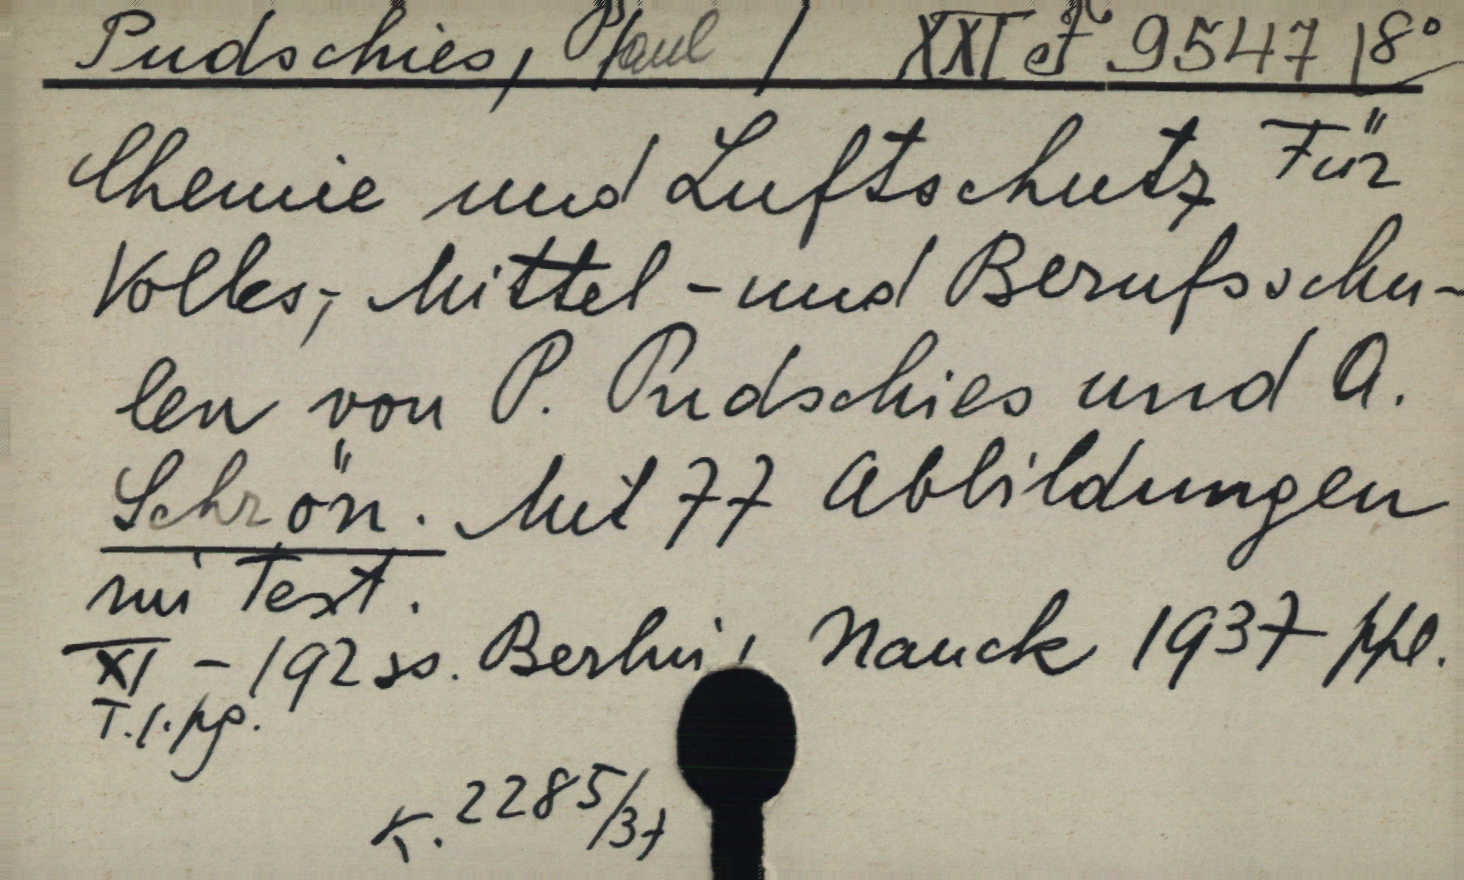 Pudschies, P/aul / XXI J 9547 /8°
Chemie und Luftschutz Für
Volks-, Mittel- und Berufsschu-
len von P. Pudschies und A.
Schrön. Mit 77 Abbildungen
im Text.
XI - 192 ss. Berlin, Nauck 1937 ppl.
T. 1. pg.
K. 2285/37